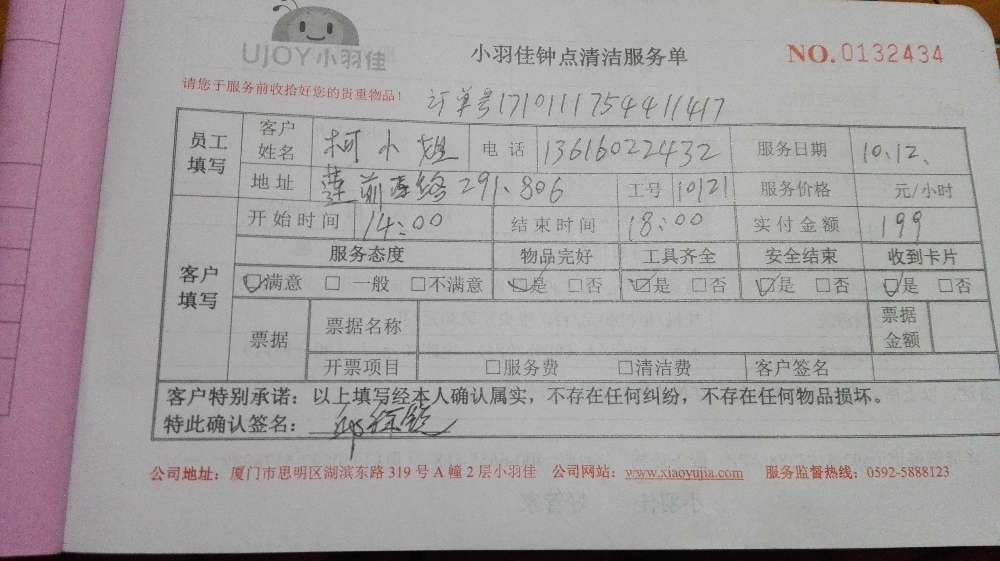 UJOY小羽佳
小羽佳钟点清洁服务单
NO.0132434
请您于服务前收拾好您的贵重物品！
订单号171011175441141​7
员工填写 客户姓名 柯小姐 电话 13616022432 服务日期 10.12.
地址 莲前东路291.806 工号 10121 服务价格 元/小时
客户填写 开始时间 14:00 结束时间 18:00 实付金额 199
服务态度 物品完好 工具齐全 安全结束 收到卡片
☑满意 □一般 □不满意 ☑是 □否 ☑是 □否 ☑是 □否 ☑是 □否
票据 票据名称 票据金额
开票项目 □服务费 □清洁费 客户签名
客户特别承诺：以上填写经本人确认属实，不存在任何纠纷，不存在任何物品损坏。
特此确认签名：
公司地址：厦门市思明区湖滨东路319号A幢2层小羽佳 公司网站：www.xiaoyujia.com 服务监督热线：0592-5888123